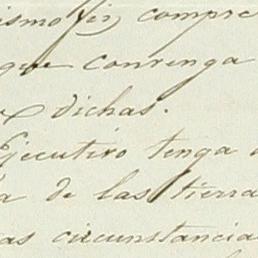 ismo fin compre
que convenga
dichas.
Ejecutivo tenga
de las tierra
as circunstancia